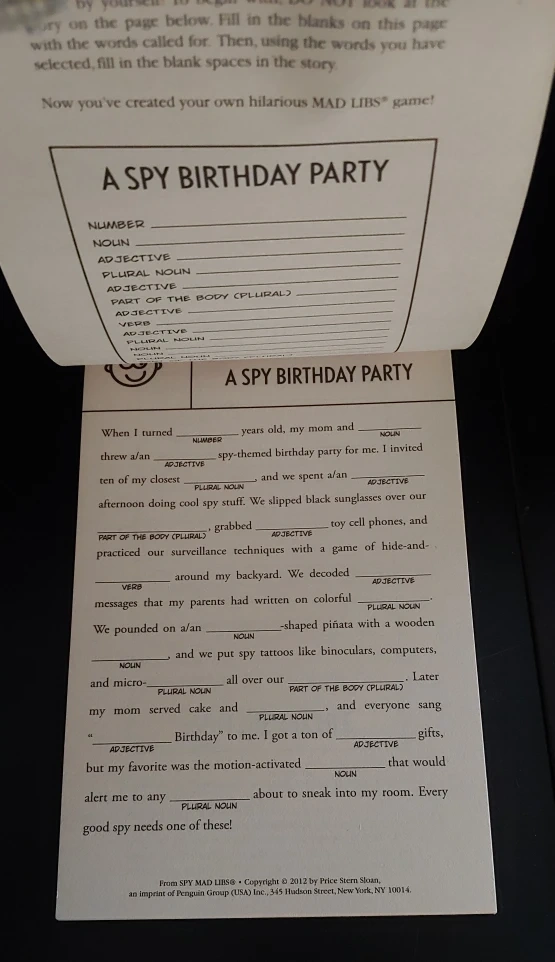 by yourself! To begin with, DO NOT look at the
story on the page below. Fill in the blanks on this page
with the words called for. Then, using the words you have
selected, fill in the blank spaces in the story.
Now you've created your own hilarious MAD LIBS® game!
A SPY BIRTHDAY PARTY
NUMBER
NOUN
ADJECTIVE
PLURAL NOUN
ADJECTIVE
PART OF THE BODY (PLURAL)
ADJECTIVE
VERB
ADJECTIVE
PLURAL NOUN
NOUN
NOUN
PLURAL NOUN
A SPY BIRTHDAY PARTY
When I turned ________ years old, my mom and ________
NUMBER NOUN
threw a/an ________ spy-themed birthday party for me. I invited
ADJECTIVE
ten of my closest ________, and we spent a/an ________
PLURAL NOUN ADJECTIVE
afternoon doing cool spy stuff. We slipped black sunglasses over our
________, grabbed ________ toy cell phones, and
PART OF THE BODY (PLURAL) ADJECTIVE
practiced our surveillance techniques with a game of hide-and-
________ around my backyard. We decoded ________
VERB ADJECTIVE
messages that my parents had written on colorful ________.
PLURAL NOUN
We pounded on a/an ________-shaped piñata with a wooden
NOUN
________, and we put spy tattoos like binoculars, computers,
NOUN
and micro-________ all over our ________. Later
PLURAL NOUN PART OF THE BODY (PLURAL)
my mom served cake and ________, and everyone sang
PLURAL NOUN
"________ Birthday" to me. I got a ton of ________ gifts,
ADJECTIVE ADJECTIVE
but my favorite was the motion-activated ________ that would
NOUN
alert me to any ________ about to sneak into my room. Every
PLURAL NOUN
good spy needs one of these!
From SPY MAD LIBS® • Copyright © 2012 by Price Stern Sloan,
an imprint of Penguin Group (USA) Inc., 345 Hudson Street, New York, NY 10014.